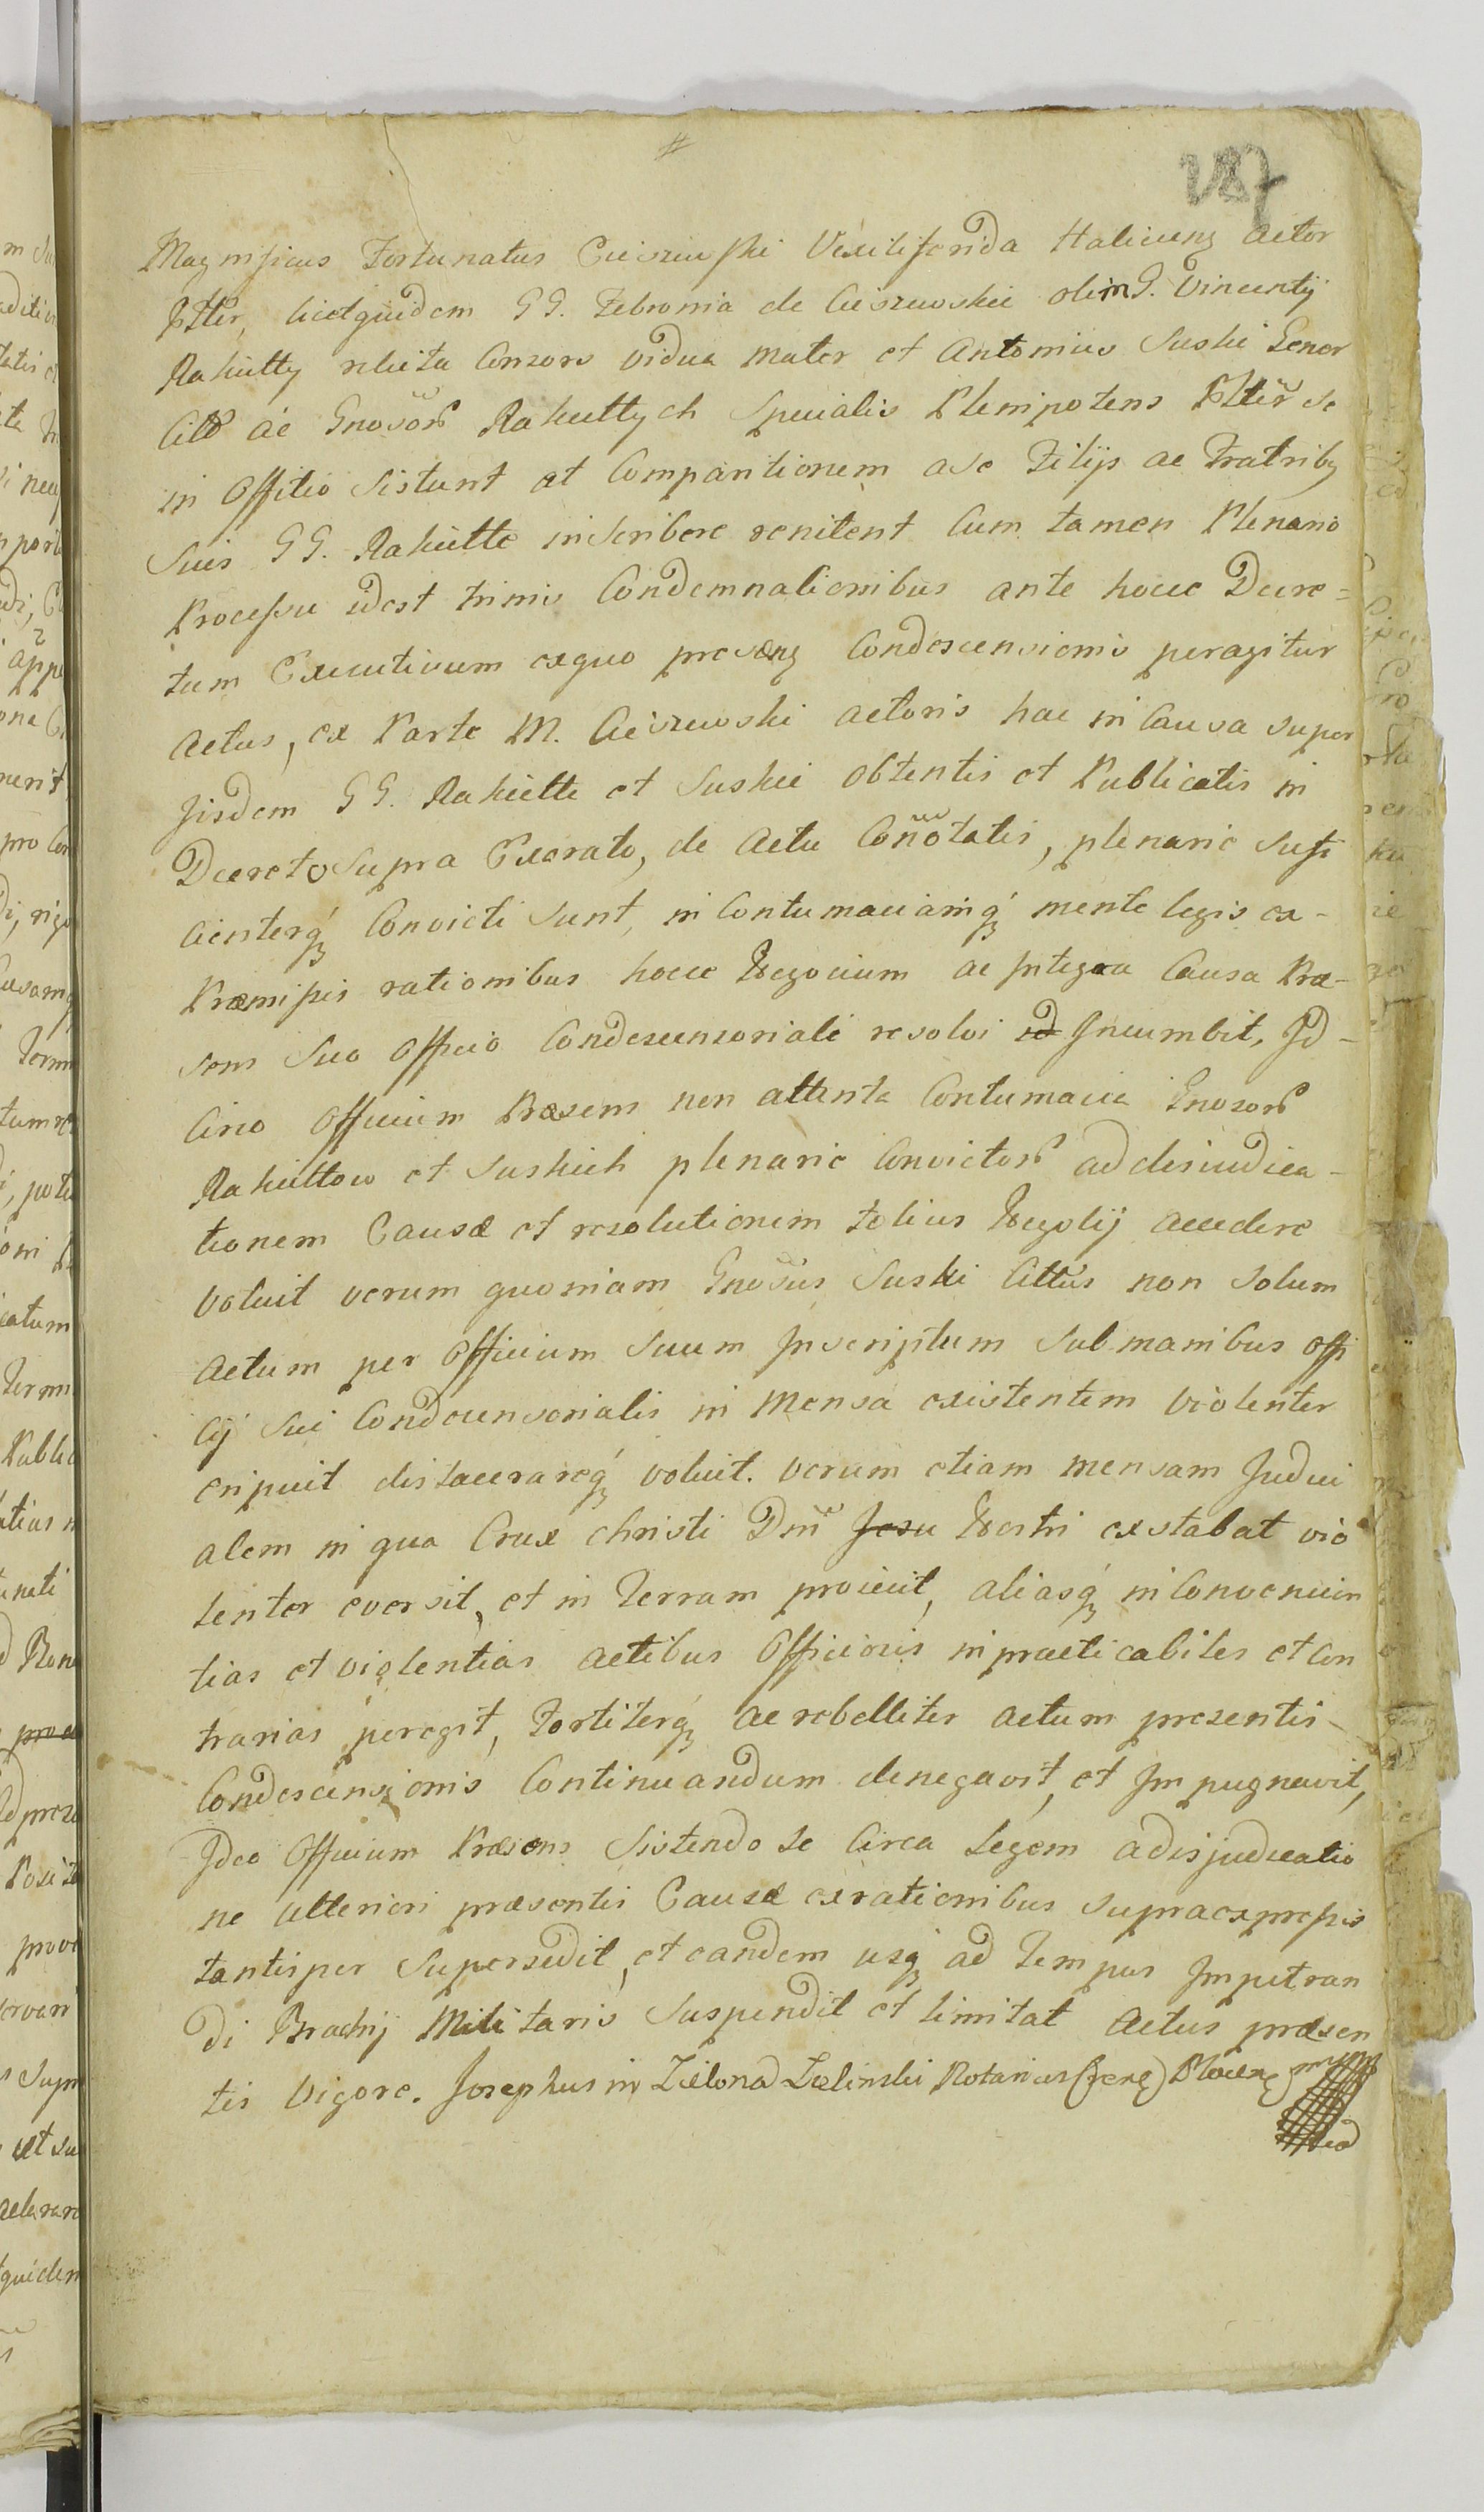 187
Magnificus Fortunatus Cieszewski Vexiliferida Halicens Actor
Ptter, licetquidem GG. Febronia de Cieszewskie olim G. Vincentij
Rakietty relicta Consors vidua Mater et Antonius Suski Gener
Citt ac Gnosor Rakiettych Specialis Plenipotens Ptter se
in Offitio Sistunt at Comparitionem a se Filijs ac Fratribq
Suis GG. Rakiette inscribere renitent Cum tamen Plenario
Processu idest trinis Condemnationibus ante hocce Decre=
tum Executivum exquo presenq Condescensionis peragitur
Actus, ex Parte M. Cieszewski Actoris hac in Causa super
Jisdem GG. Rakiette et Suskie obtentis et Publicatis in
Decreto Supra Exerato, de Actu Connotatis, plenarie suffi
cienterq Convicti Sunt, in Contumaciamq mente legis ex-
Præmissis rationibus hocce Negocium ac Integra Causa Præ-
sens Suo Officio Condescensoriali resolvi id Incumbit, Id-
circo Officium Præsens non attenta Contumacia Gnosor
Rakiettow et Suskich plenarie Convictor ad desiudica-
tionem Causæ et resolutionem totius Negotij accedere
voluit verum quoniam Gnosus Suski Cittus non solum
Actum per Officium Suum Inscriptum Sub manibus Offi
cij Sui Condescensorialis in Mensa existentem violenter
eripuit dislacerareq voluit. verum etiam mensam Judici
alem in qua Crux Christi Dni Jesu Nostri exstabat vio
lenter eversit, et in Terram proiecit, aliasq inConvenien
tias et violentias Actibus Officiosis inpracticabiles et Con
trarias peregit, Fortiterq ac rebelliter actum presentis
Condescensionis Continuandum denegavit, et Impugnavit,
Ideo Officium Præsens Sistendo se Circa Legem adisjudicatio
ne ulteriori præsentis Causæ ex rationibus supraexpressis
tantisper Supersedit, et eandem usq ad Tempus Impetran
di Brachij Militaris Suspendit et limitat Actus præsen
tis Vigore. Josephus in Zielona Zielinski Notarius (Terq) Plocenq mpp